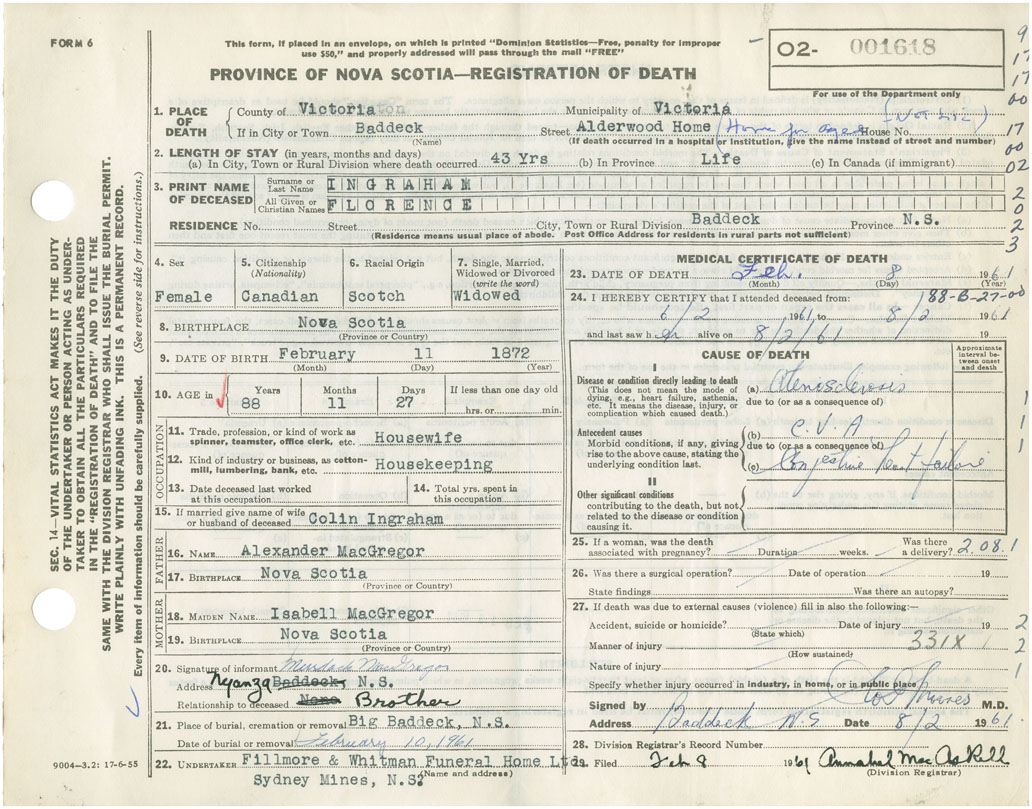 FORM 6
This form, if placed in an envelope, on which is printed "Dominion Statistics—Free, penalty for improper
use $50," and properly addressed will pass through the mail "FREE"
PROVINCE OF NOVA SCOTIA—REGISTRATION OF DEATH
O2- 001618
For use of the Department only
9
17
17
00
17
00
02
2
0
2
3
1. PLACE OF DEATH
County of Victoria
Municipality of Victoria
If in City or Town Baddeck
(Name)
Street Alderwood Home (Home for aged House No.
(Not Lic)
(If death occurred in a hospital or institution, give the name instead of street and number)
2. LENGTH OF STAY (in years, months and days)
(a) In City, Town or Rural Division where death occurred 43 Yrs (b) In Province Life (c) In Canada (if immigrant)
3. PRINT NAME OF DECEASED
Surname or Last Name INGRAHAM
All Given or Christian Names FLORENCE
RESIDENCE No. Street City, Town or Rural Division Baddeck Province N.S.
(Residence means usual place of abode. Post Office Address for residents in rural parts not sufficient)
4. Sex
Female
5. Citizenship
(Nationality)
Canadian
6. Racial Origin
Scotch
7. Single, Married,
Widowed or Divorced
(write the word)
Widowed
8. BIRTHPLACE Nova Scotia
(Province or Country)
9. DATE OF BIRTH February 11 1872
(Month) (Day) (Year)
10. AGE in
Years Months Days If less than one day old
88 11 27 hrs. or min.
OCCUPATION
11. Trade, profession, or kind of work as
spinner, teamster, office clerk, etc. Housewife
12. Kind of industry or business, as cotton-
mill, lumbering, bank, etc. Housekeeping
13. Date deceased last worked
at this occupation
14. Total yrs. spent in
this occupation
15. If married give name of wife
or husband of deceased Colin Ingraham
FATHER
16. NAME Alexander MacGregor
17. BIRTHPLACE Nova Scotia
(Province or Country)
MOTHER
18. MAIDEN NAME Isabell MacGregor
19. BIRTHPLACE Nova Scotia
(Province or Country)
20. Signature of informant Murdock MacGregor
Address Nyanza Baddeck, N.S.
Relationship to deceased None Brother
21. Place of burial, cremation or removal Big Baddeck, N.S.
Date of burial or removal February 10, 1961
22. UNDERTAKER Fillmore & Whitman Funeral Home Ltd.
Sydney Mines, N.S.
(Name and address)
9004—3.2: 17-6-55
MEDICAL CERTIFICATE OF DEATH
23. DATE OF DEATH Feb. 8 1961
(Month) (Day) (Year)
24. I HEREBY CERTIFY that I attended deceased from: 188-B-27-00
6/2 1961, to 8/2 1961
and last saw her alive on 8/2/61 19
CAUSE OF DEATH
Approximate
interval be-
tween onset
and death
I
Disease or condition directly leading to death
(This does not mean the mode of
dying, e.g., heart failure, asthenia,
etc. It means the disease, injury, or
complication which caused death.)
(a) Atenosclerosis
due to (or as a consequence of)
Antecedent causes
Morbid conditions, if any, giving
rise to the above cause, stating the
underlying condition last.
(b) C.V.A
due to (or as a consequence of)
(c) Congestive heart failure
II
Other significant conditions
contributing to the death, but not
related to the disease or condition
causing it.
1
1
1
25. If a woman, was the death
associated with pregnancy? Duration weeks. Was there
a delivery? 2.08.1
26. Was there a surgical operation? Date of operation 19
State findings Was there an autopsy?
27. If death was due to external causes (violence) fill in also the following:—
Accident, suicide or homicide? Date of injury 19
(State which)
Manner of injury 331X
(How sustained)
Nature of injury
2
2
1
Specify whether injury occurred in industry, in home, or in public place
Signed by M.D.
Address Baddeck N.S Date 8/2 1961.
28. Division Registrar's Record Number
29. Filed Feb 8 1961 Annabel MacAskill
(Division Registrar)
SEC. 14—VITAL STATISTICS ACT MAKES IT THE DUTY
OF THE UNDERTAKER OR PERSON ACTING AS UNDER-
TAKER TO OBTAIN ALL THE PARTICULARS REQUIRED
IN THE "REGISTRATION OF DEATH" AND TO FILE THE
SAME WITH THE DIVISION REGISTRAR WHO SHALL ISSUE THE BURIAL PERMIT.
WRITE PLAINLY WITH UNFADING INK. THIS IS A PERMANENT RECORD.
Every item of information should be carefully supplied. (See reverse side for instructions.)